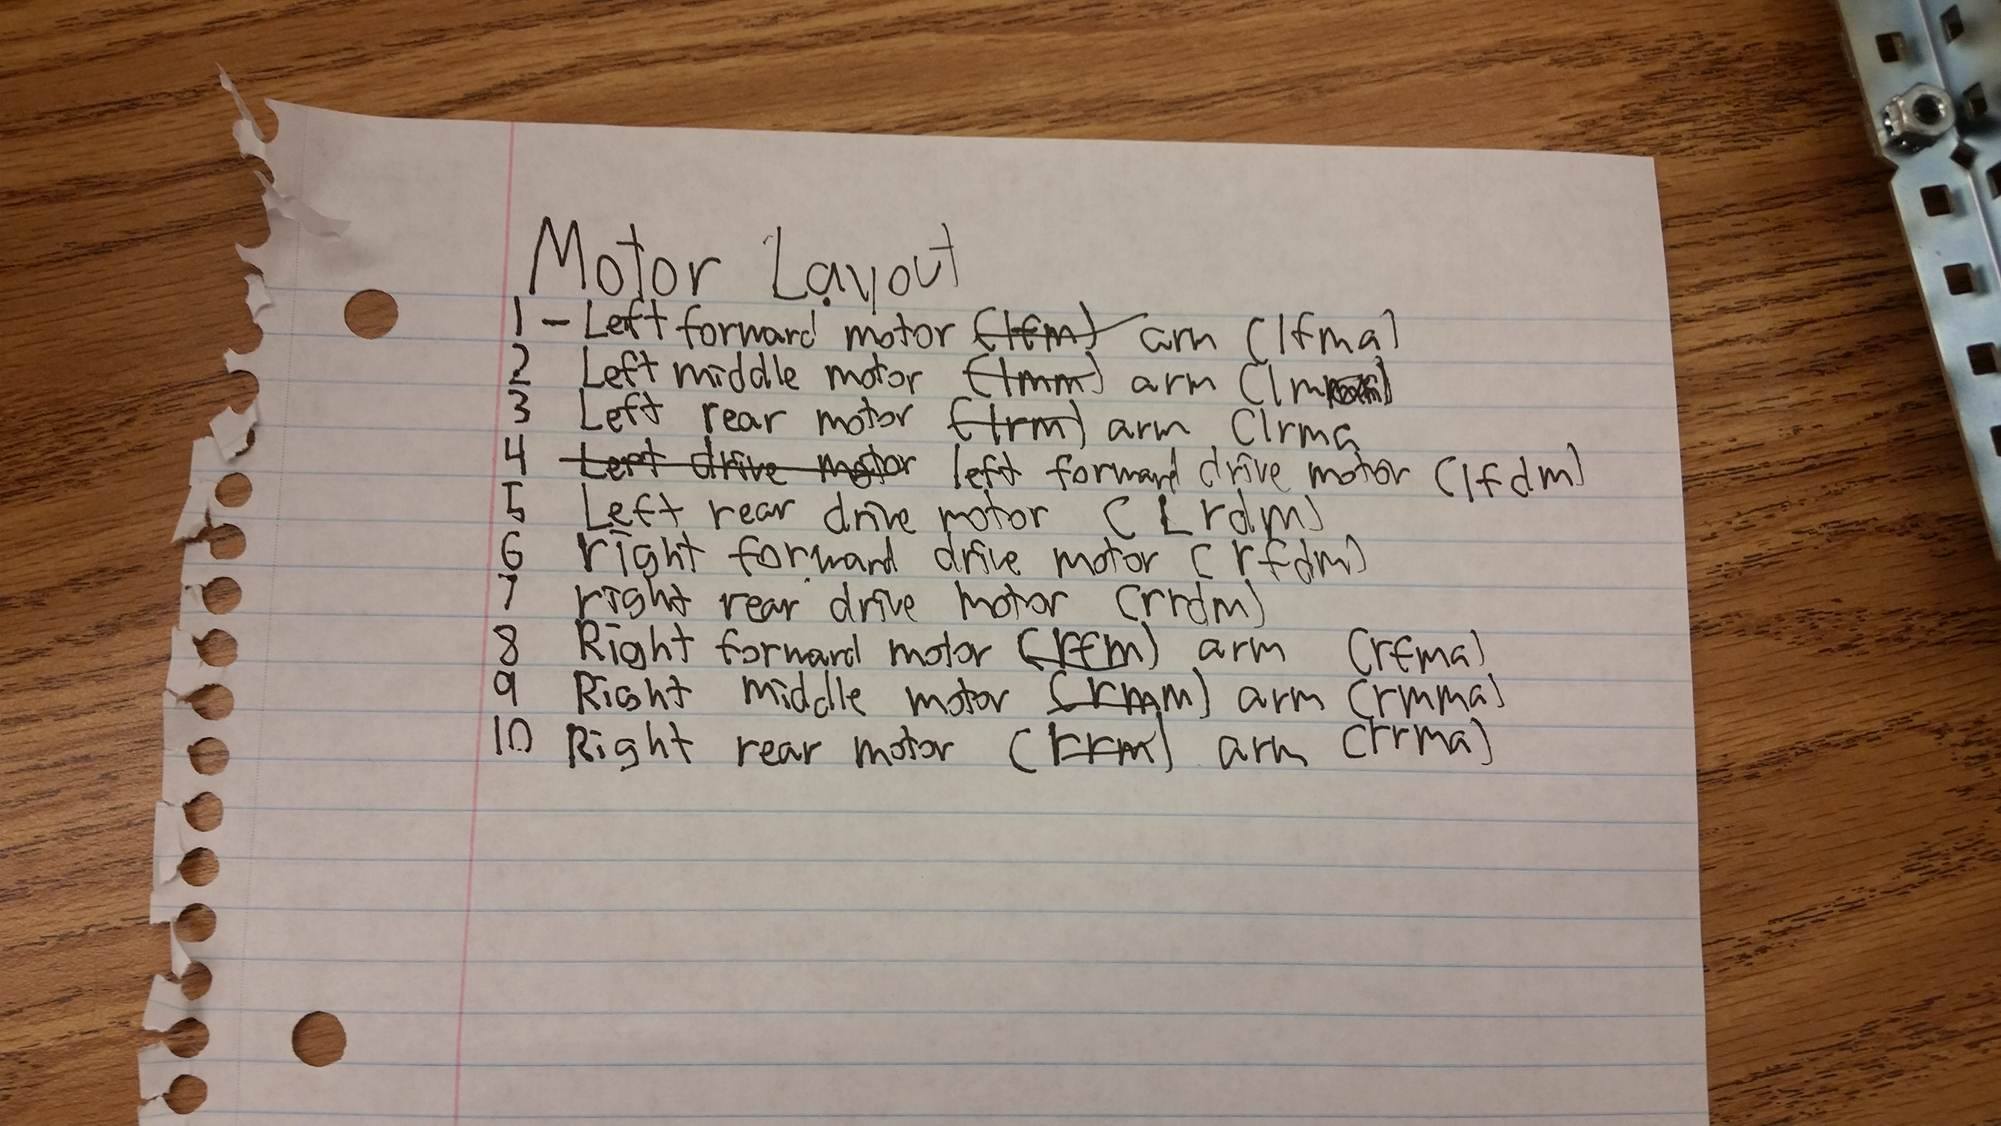 Motor Layout
1 - Left forward motor (lfm) arm (lfma)
2 Left middle motor (lmm) arm
3 Left rear motor (lrm) arm (lrma
4 Left drive motor left forward drive motor (lfdm)
5 Left rear drive motor (Lrdm)
6 right forward drive motor (rfdm)
7 right rear drive motor (rrdm)
8 Right forward motor (rfm) arm (rfma)
9 Right middle motor (rmm) arm (rmma)
10 Right rear motor (rrm) arm (rrma)